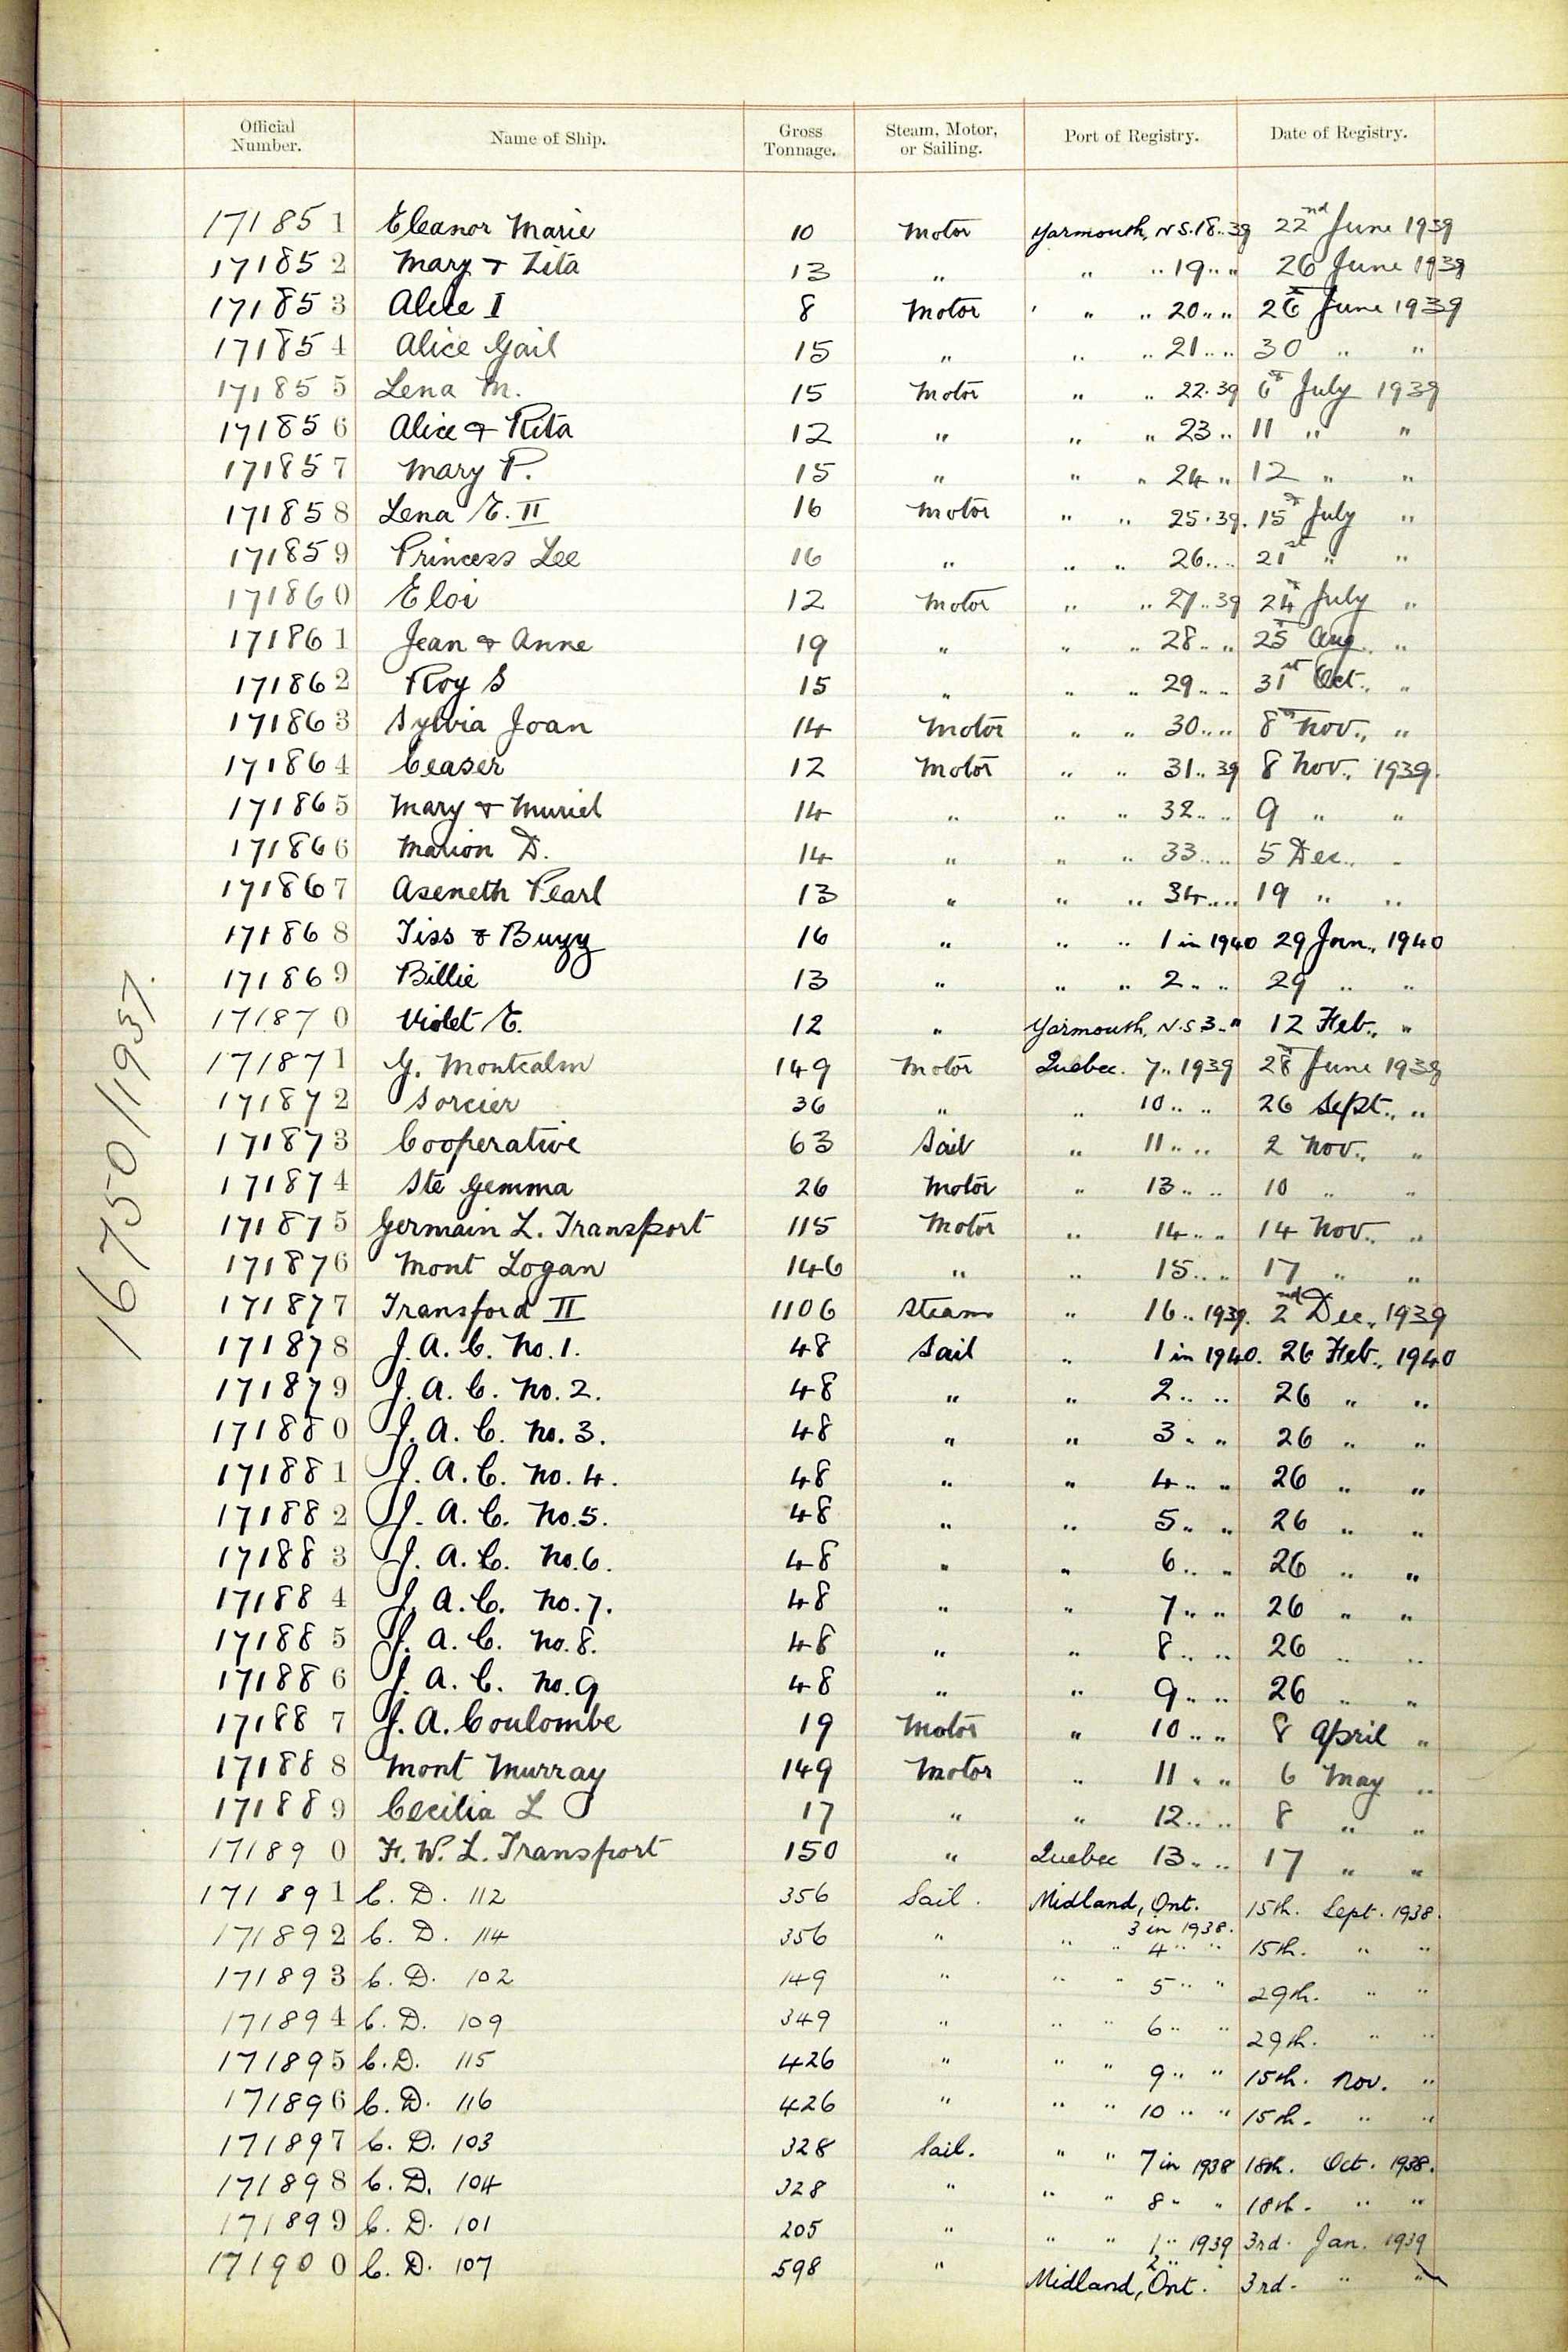 Official Number. Name of Ship. Gross Tonnage. Steam, Motor, or Sailing. Port of Registry. Date of Registry.
171851 Eleanor Marie 10 Motor Yarmouth, N.S. 18..39 22nd June 1939
171852 Mary & Zita 13 " " " 19 " " 26 June 1939
171853 Alice I 8 Motor " " 20 " " 26th June 1939
171854 Alice Gail 15 " " " 21 " " 30 " "
171855 Lena M. 15 Motor " " 22.39 6th July 1939
171856 Alice & Rita 12 " " " 23 " 11 " "
171857 Mary P. 15 " " " 24 " 12 " "
171858 Lena E. II 16 Motor " " 25.39. 15th July "
171859 Princess Lee 16 " " " 26 " " 21st " "
171860 Eloi 12 Motor " " 27..39 24th July "
171861 Jean & Anne 19 " " " 28 " " 25th Aug. "
171862 Roy S 15 " " " 29 " " 31st Oct., "
171863 Sylvia Joan 14 Motor " " 30 " " 8th Nov., "
171864 Ceaser 12 Motor " " 31..39 8 Nov., 1939.
171865 Mary & Muriel 14 " " " 32 " " 9 " "
171866 Marion D. 14 " " " 33 " " 5 Dec., "
171867 Aseneth Pearl 13 " " " 34 " " 19 " "
171868 Tiss & Buzz 16 " " " 1 in 1940 29 Jan., 1940
171869 Billie 13 " " " 2 " " 29 " "
171870 Violet E. 12 " Yarmouth, N.S 3 " " 12 Feb., "
171871 G. Montcalm 149 Motor Quebec. 7.. 1939 28th June 1939
171872 Sorcier 36 " " 10 " " 26 Sept., "
171873 Cooperative 63 Sail " 11 " " 2 Nov., "
171874 Ste Gemma 26 Motor " 13 " " 10 " "
171875 Germain L. Transport 115 Motor " 14 " " 14 Nov., "
171876 Mont Logan 146 " " 15 " " 17 " "
171877 Transford II 1106 Steam " 16.. 1939. 2nd Dec., 1939
171878 J. A. C. No. 1. 48 Sail " 1 in 1940. 26 Feb., 1940
171879 J. A. C. No. 2. 48 " " 2 " " 26 " "
171880 J. A. C. No. 3. 48 " " 3 " " 26 " "
171881 J. A. C. No. 4. 48 " " 4 " " 26 " "
171882 J. A. C. No. 5. 48 " " 5 " " 26 " "
171883 J. A. C. No. 6. 48 " " 6 " " 26 " "
171884 J. A. C. No. 7. 48 " " 7 " " 26 " "
171885 J. A. C. No. 8. 48 " " 8 " " 26 " "
171886 J. A. C. No. 9 48 " " 9 " " 26 " "
171887 J. A. Coulombe 19 Motor " 10 " " 8 April "
171888 Mont Murray 149 Motor " 11 " " 6 May "
171889 Cecilia L 17 " " 12 " " 8 " "
171890 F. W. L. Transport 150 " Quebec 13 " " 17 " "
171891 C. D. 112 356 Sail. Midland, Ont. 3 in 1938. 15th. Sept. 1938.
171892 C. D. 114 356 " " " 4 " " 15th. " "
171893 C. D. 102 149 " " " 5 " " 29th. " "
171894 C. D. 109 349 " " " 6 " " 29th. " "
171895 C. D. 115 426 " " " 9 " " 15th. Nov. "
171896 C. D. 116 426 " " " 10 " " 15th. " "
171897 C. D. 103 328 Sail. " " 7 in 1938 18th. Oct. 1938.
171898 C. D. 104 328 " " " 8 " " 18th. " "
171899 C. D. 101 205 " " " 1 " 1939 3rd. Jan. 1939
171900 C. D. 107 598 " Midland, Ont. 2 " " 3rd. " "
16750/1937.